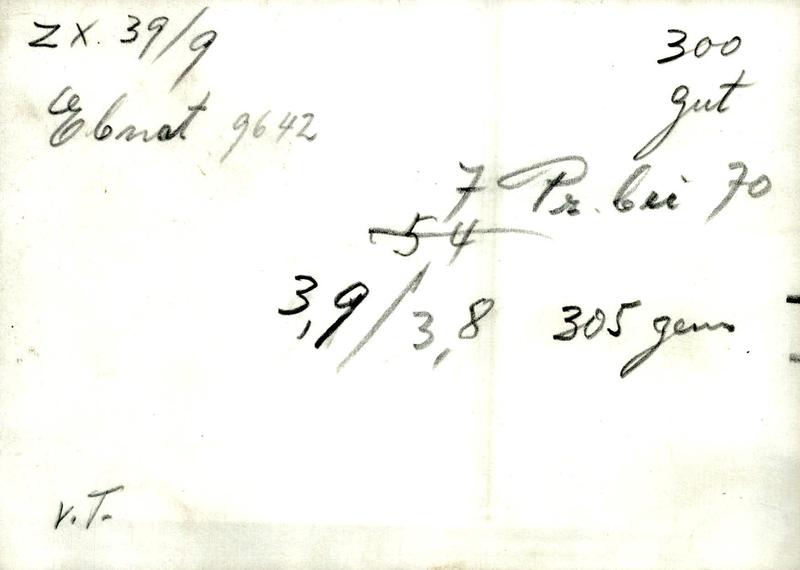 ZX. 39/9
300
gut
Ebnat 9642
7 Pr. bei 70
54
3,9/3,8 305 gem
v.T.